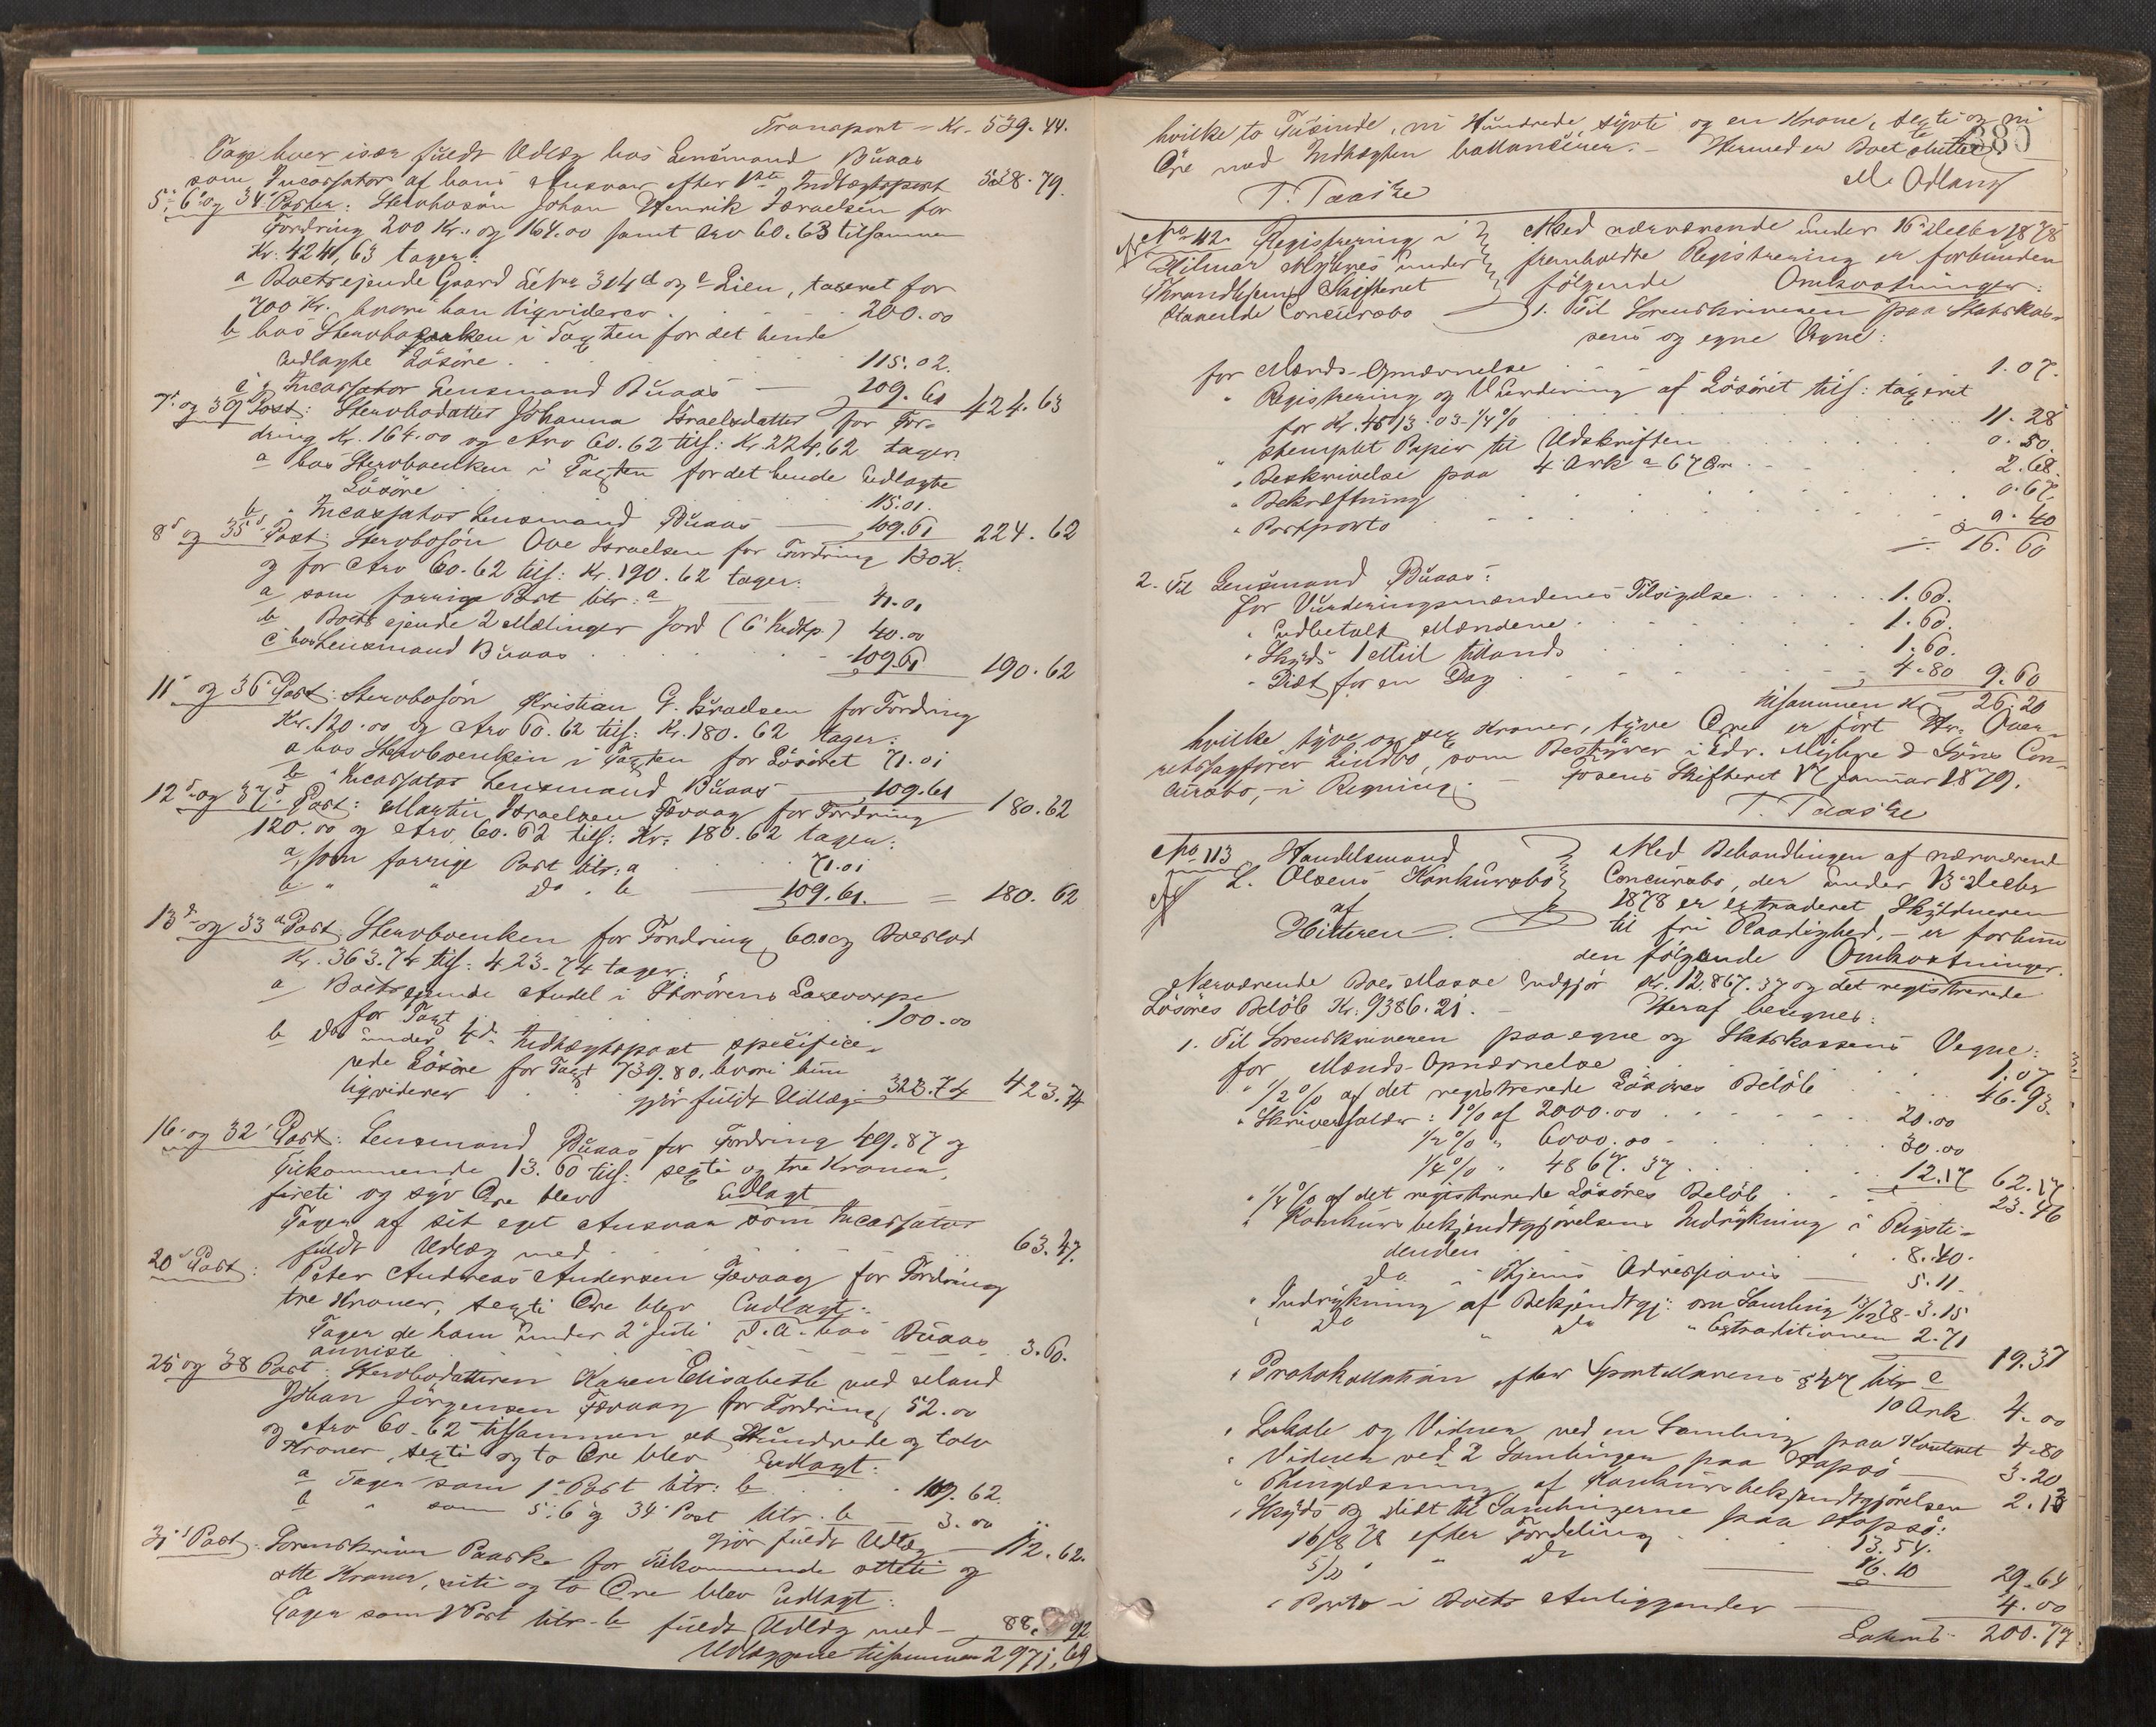 Transport = Kr. 539.44.
Tage hver især fuldt Udlæg hos Lensmand Buaas
som Incassator af hans Ansvar efter 1ste Indtægtspost 538.79.
5., 6. og 34. Posten: Stervbosøn Johan Henrik Israelsen for
Fordring 200 Kr. og 164.00 samt Arv 60.63 tilsammen
Kr. 424,63 tager:
a Boets ejende Gaard Lite 314 d og e Lien, taxeret for
700 Kr. hvori han liqviderer . 200.00
b hos Stervboenken i Taxten for det hende
udlagte Løsøre . 115.02.
c " Incassator Lensmand Buaas — 109.61 424.63
7. og 39 Post: Stervbodatter Johanna Israelsdatter for For-
dring Kr. 164.00 og Arv 60.62 tils: Kr. 224,62 tager
a hos Stervboenken i Taxten for det hende udlagte
Løsøre 115.01.
b " Incassator Lensmand Buaas — 109.61 224.62
8d og 35d Post: Stervbosøn Ove Israelsen for Fordring 130 Kr.
og for Arv 60.62 tils: Kr. 190.62 tager:
a som forrige Post litr: a 41.01
b Boets ejende 2 Mælinger Jord (6 Indtp.) 40.00
c hos Lensmand Buaas 109.61 190.62
11. og 36. Post: Stervbosøn Kristian G. Israelsen for Fordring
Kr. 120.00 og Arv 60.62 tils: Kr. 180.62 tager:
a hos Stervboenken i Taxten for Løsøret 71.01
b " Incassator Lensmand Buaas — 109.61 180.62
12d og 37d Post: Martin Israelsen Tævaag for Fordring
120.00 og Arv 60.62 tils: Kr. 180.62 tager:
a, som forrige Post litr: a 71.01
b " " do. b — 109.61. = 180.62
13d og 33d Post: Stervboenken for Fordring 60.00 og Boeslod
Kr. 363.74 tils: 423.74 tager:
a Boets ejende Andel i
for Taxt 100.00
b Do under 4d Indtægtspost specifice-
rede Løsøre for Taxt 739.80, hvori hun
liqviderer gjør fuldt Udlæg 323.74 423.74
16. og 32. Post: Lensmand Buaas for Fordring 49.87 og
Tilkommende 13.60 tils: sexti og tre Kroner,
fireti og syv Øre blev Udlagt
Tager af sit eget Ansvar som Incassator
fuldt Udlæg med 63.47.
20d Post: Peter Andreas Andersen Tævaag for Fordring
tre Kroner, sexti Øre blev Udlagt:
Tager de ham under 2 Juli d. A. hos Buaas
anviste 3.60.
25 og 38 Post: Stervbodatteren Karen Elisabeth med Mand
Johan Jørgensen Tævaag for Fordring 52.00
og Arv 60.62 tilsammen et Hundrede og tolv
Kroner, sexti og to Øre blev Udlagt:
a Tager som 1. Post litr: b 109.62.
b " som 5. 6 og 34 Post litr. b 3.00
gjør fuldt Udlæg — 112.62.
31.s Post: Sorenskriver Paaske for Tilkommende otteti og
otte Kroner, niti og to Øre blev Udlagt:
Tager som 1 Post litr. b fuldt Udlæg med — 88.92
Udlæggene tilsammen 2971,69
385
hvilke to Tusinde, ni Hundrede, sypti og en Krone, sexti og ni
Øre med Indtægten ballancerer. — Hermed er Boet sluttet.
M. Odlang
T. Paaske
No 42. Registrering i
Hilmar Myhres under
Throndhjems Skifteret
staaende Concursbo
Med nærværende under 16 Decbr 1878
fremholdte Registrering er forbunden
følgende Omkostninger:
1. Til Sorenskriveren paa Statskas-
sens og egne Vegne:
for Mænds-Opnævnelse 1.07.
" Registrering og Vurdering af Løsøret tils: taxeret
for Kr. 4513.03 - 1/4 % 11.28
" stemplet Papir til Udskriften 0.50.
" Beskrivelse paa 4 Ark a 67 Øre 2.68.
" Bekræftning 0.67.
" Postporto 0.40
16.60
2. Til Lensmand Buaas:
for Vurderingsmændenes Tilsigelse 1.60.
" Udbetalt Mændene 1.60.
" Skyds 1 Miil tillands 1.60.
" Diæt for en Dag 4.80 9.60
tilsammen Kr. 26.20
hvilke tyve og sex Kroner, tyve Øre er ført Hr. Over-
retssagfører Lindbo, som Bestyrer i Edv. Myhre & Søns Con-
cursbo, i Regning. — Fosens Skifteret 17 Januar 1879.
T. Paaske
No 113 Handelsmand
L. Olsens Konkursbo
af
Hitteren.
Med Behandlingen af nærværende
Concursbo, der under 13 Decbr
1878 er extraderet Skyldneren
til fri Raadighed, — er forbun-
den følgende Omkostninger.
Nærværende Boes Masse Udgjør Kr. 12.867.37 og det registrerede
Løsøres Beløb Kr. 9386.21. — Heraf beregnes:
1. Til Sorenskriveren paa egne og Statskassens Vegne:
for Mænds-Opnævnelse 1.07
" 1/2 % af det registrerede Løsøres Beløb 46.93.
" Skriversalær: 1 % af 2000.00 20.00
1/2 % " 6000.00 30.00
1/4 % " 4867.37 12.17 62.17
" 1/4 % af det registrerede Løsøres Beløb 23.46
" Konkursbekjendtgjørelsens Indrykning i Rigsti-
denden 8.40.
Do i Thjems Adresseavis — 5.11
" Indrykning af Bekjendtgj: om Samling 13/12 78 - 3.15
" Do " Do " Extraditionen 2.71
19.37
" Protokollation efter Sportellovens § 47 litr e
10 Ark 4.00
" Lokale og Vidner ved en Samling paa Kontoret 4.80
" Vidner ved 2 Samlinger paa Hopsø — 3.20
" Thinglæsning af Konkursbekjendtgjørelsen 2.13
" Skyds og Diæt til Samlingerne paa Hopsø:
16/8 78 efter Fordeling 13.54.
5/10 " " Do 16.10 29.64
" Porto i Boets Anliggender — 4.00
Latus 200.77.